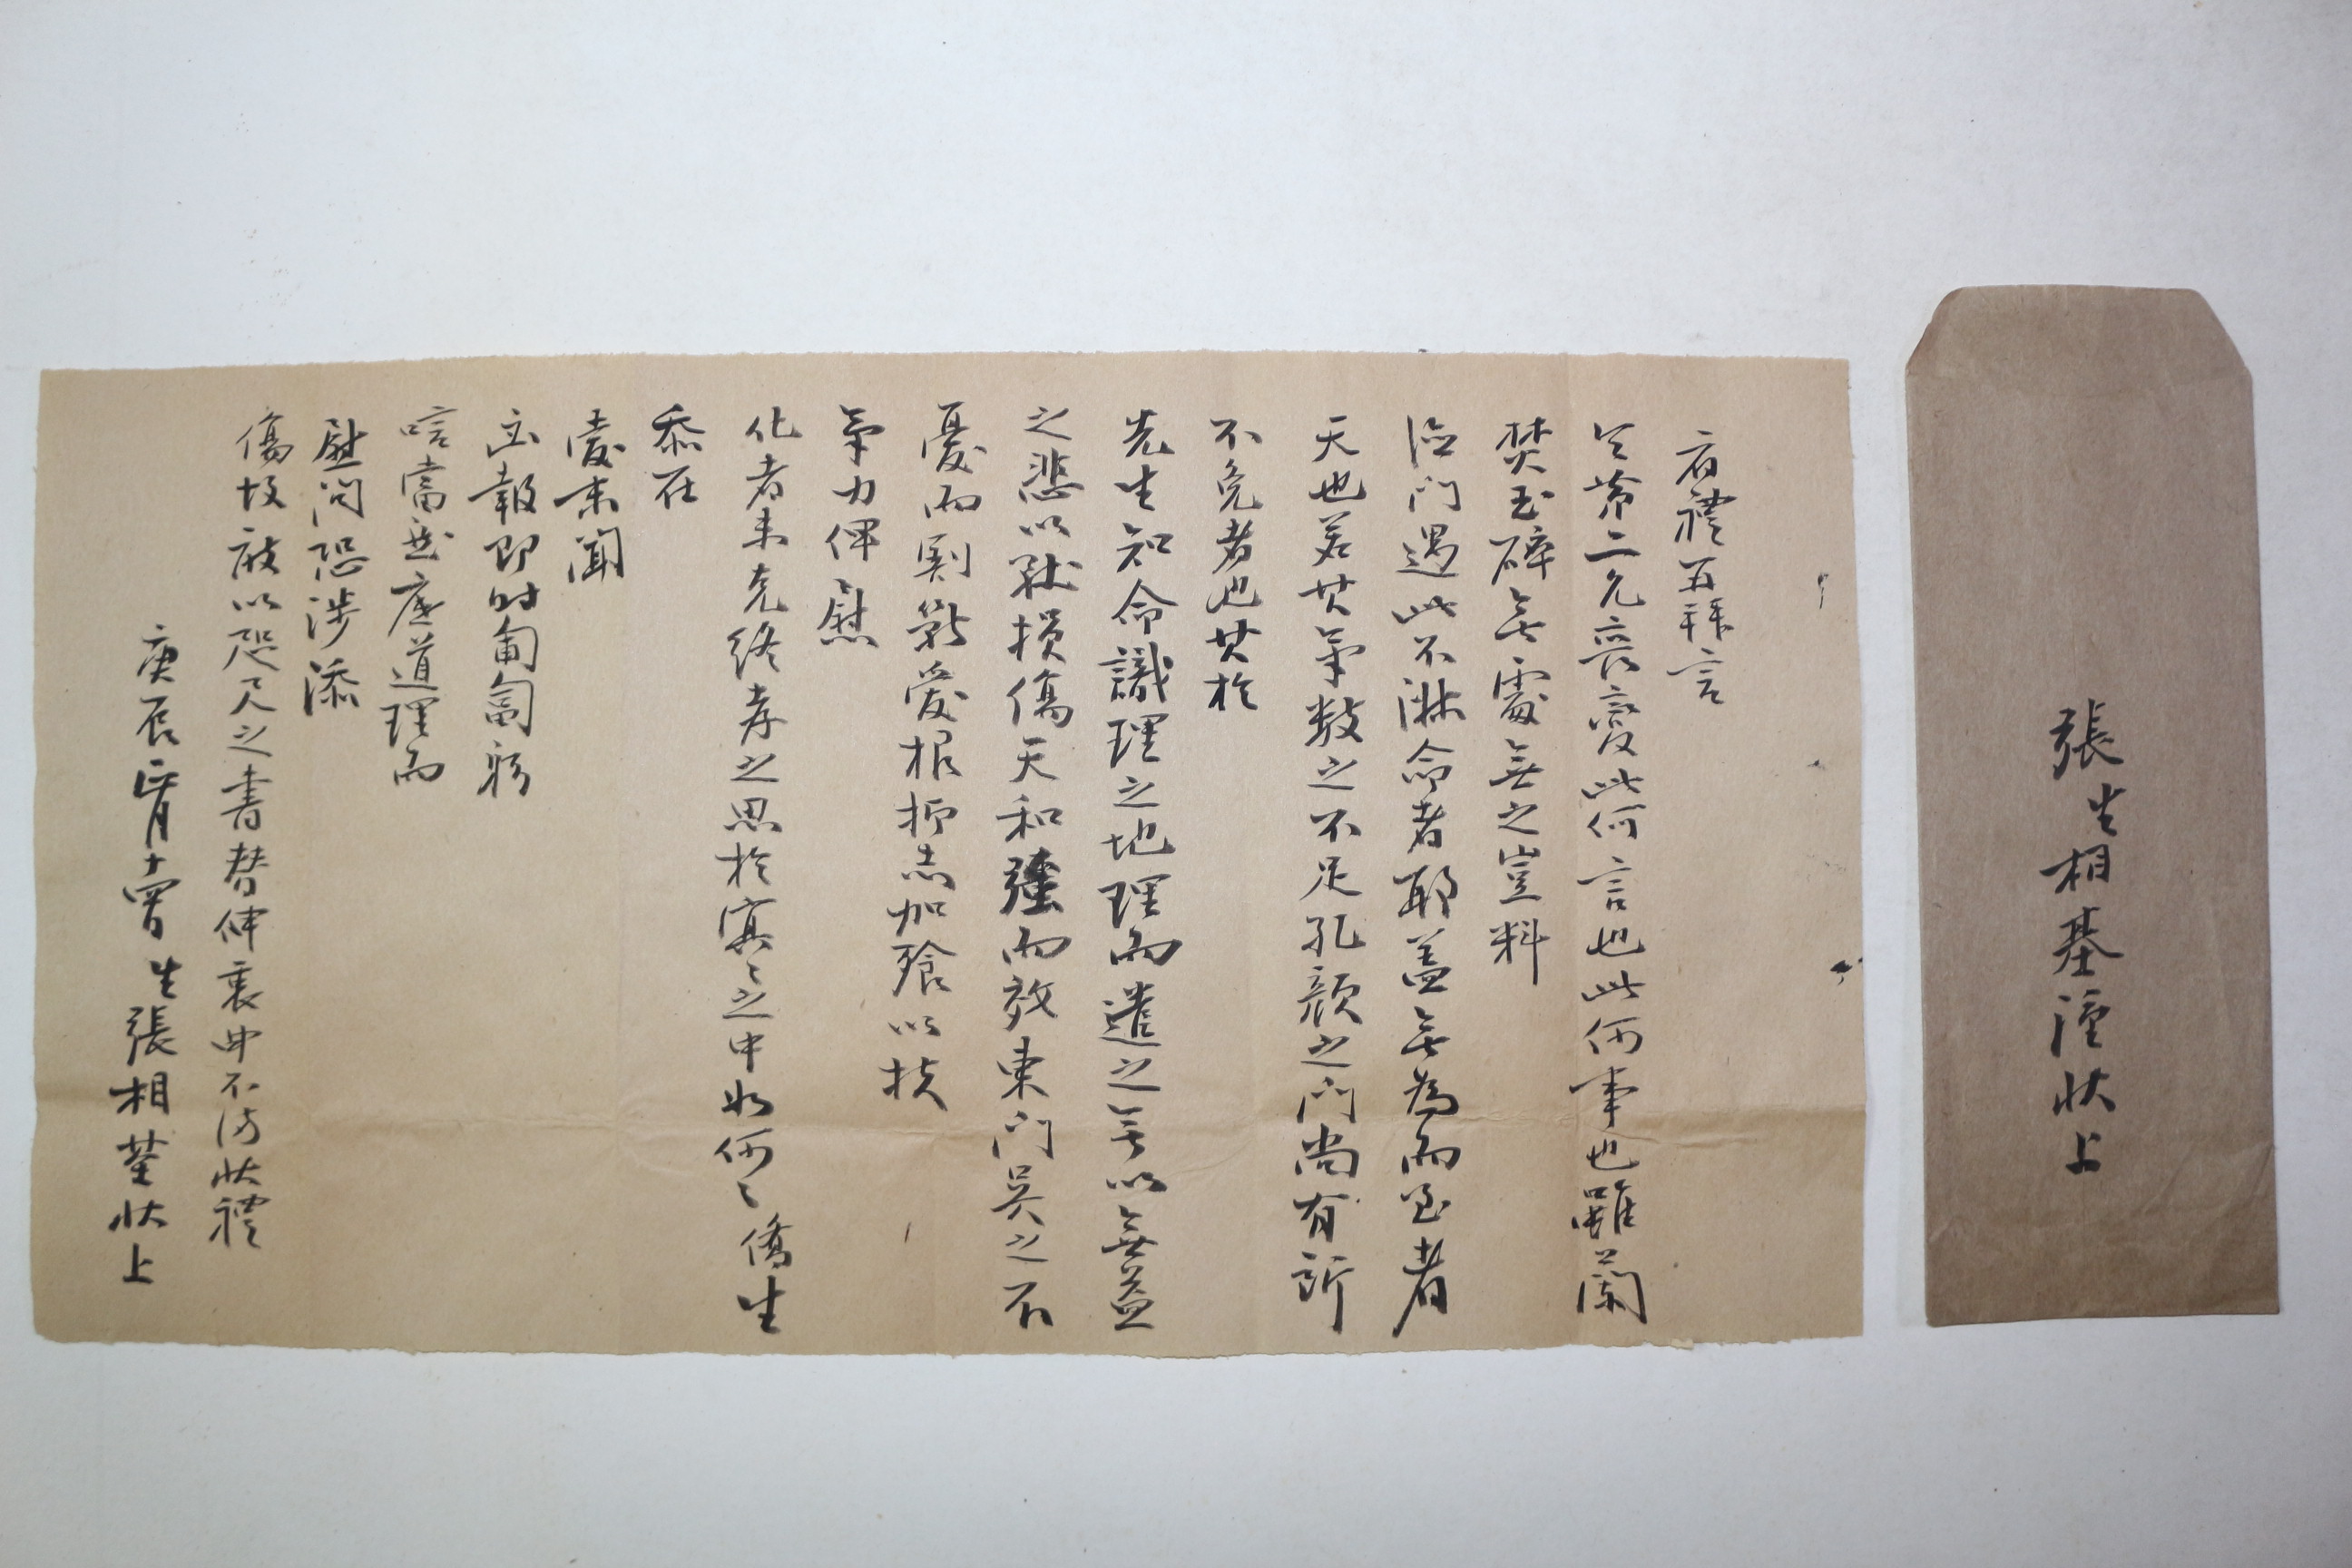 省禮五拜言
令第二允喪變此何言也此何事也雖蘭
焚玉碎無處無之豈料
德門遇此不淑命者耶盖無爲而至者
天也若其氣數之不足孔顔之門尚有所
不免者也其於
先生知命識理之地理而遣之無以無益
之悲以致損傷天和強而效東門吳之不
憂而割斷愛根抑志加飱以扶
氣力俾慰
化者未克終孝之思於冥〻之中如何〻僑生
忝在
愛末聞
凶報即時匍匐躬
唁當然底道理而
慰問恐涉添
傷故敢以咫尺之書替伸衷曲不備狀禮
庚辰正月十 日 生張相基狀上
張生相基謹狀上